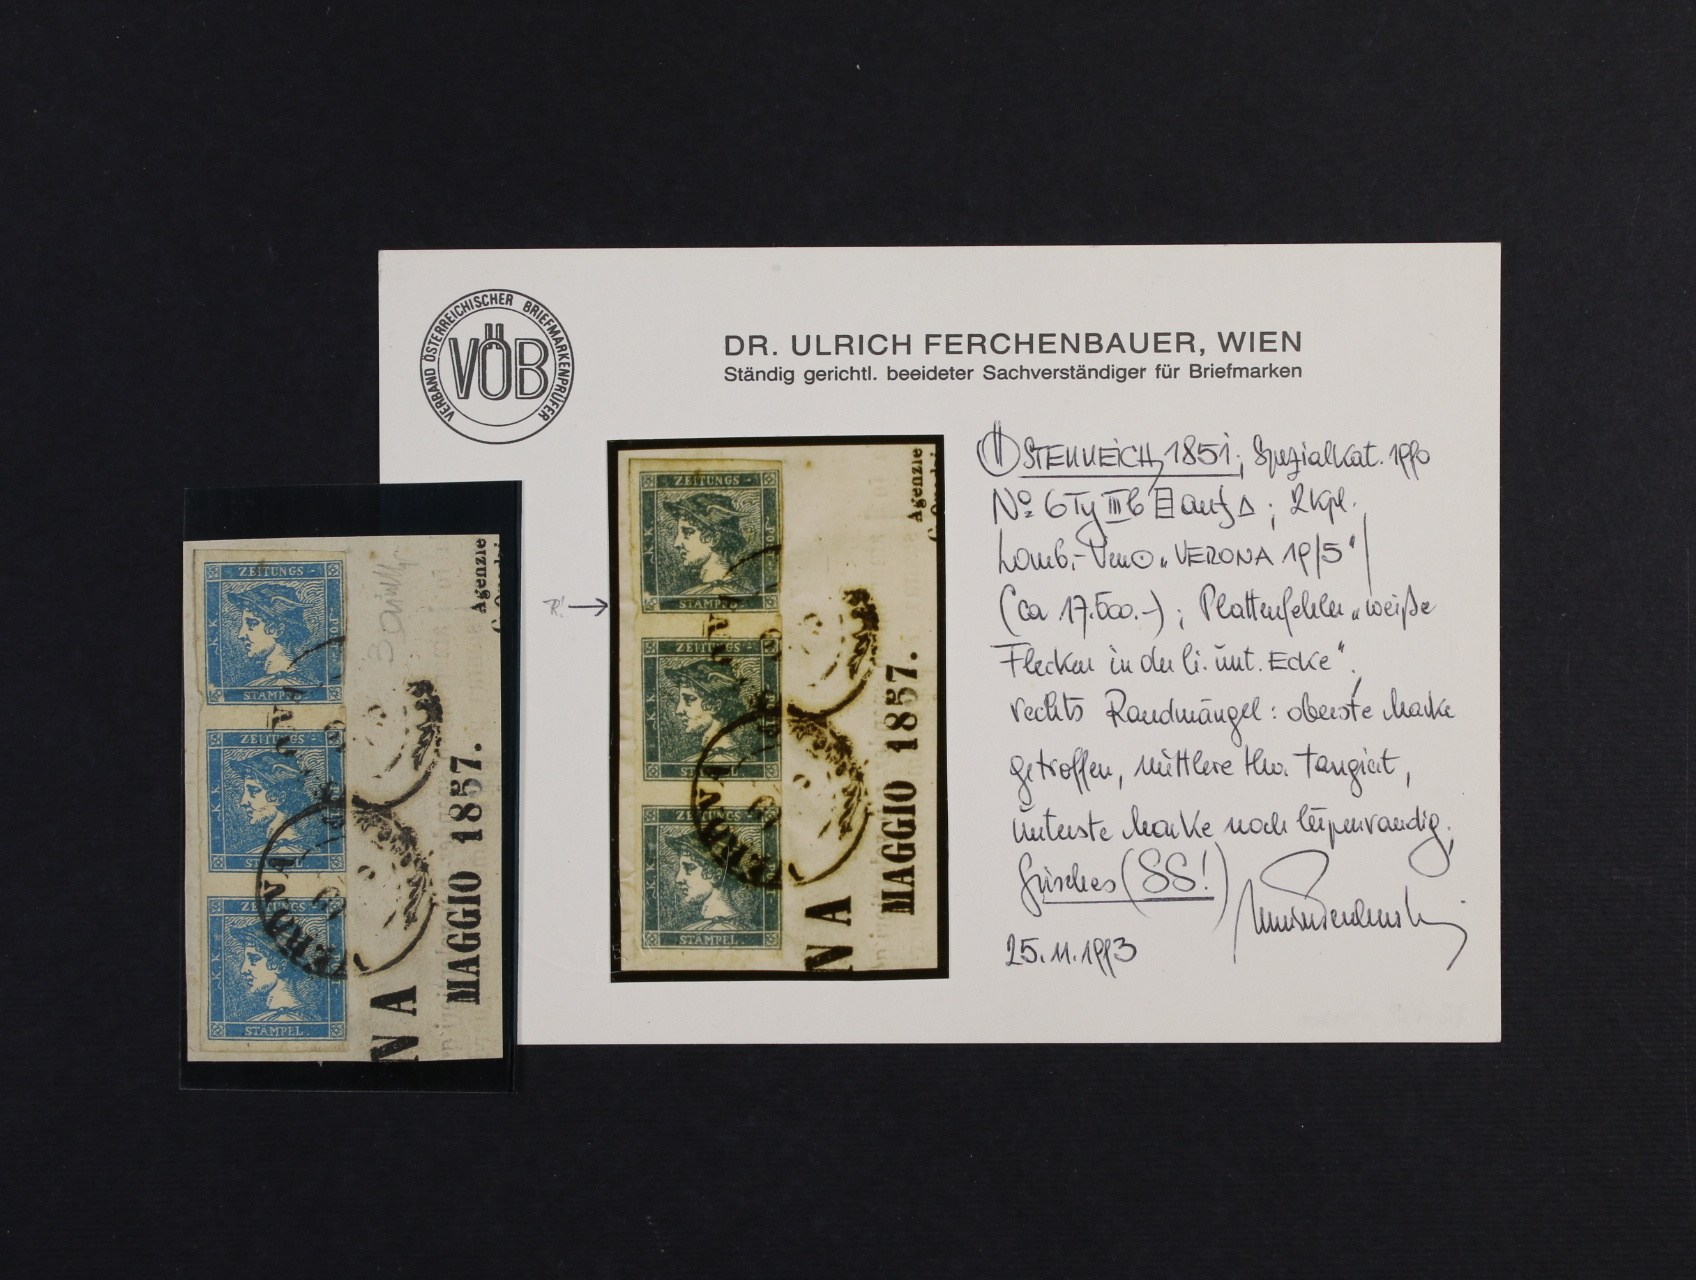 VERBAND ÖSTERREICHISCHER BRIEFMARKENPRÜFER
VÖB
DR. ULRICH FERCHENBAUER, WIEN
Ständig gerichtl. beeideter Sachverständiger für Briefmarken
ÖSTERREICH, 1851; Spezialkat. 1990
No 6 Ty IIIb auf △; 2 kpl.
Lomb.-Ven⊙ "VERONA 19/5"
(ca 17.500.-); Plattenfehler "weiße
Flecken in der li. unt. Ecke";
rechts Randmängel: oberste Marke
getroffen, mittlere tangiert,
unterste Marke noch lupenrandig;
frisches (SS!)
25.11.1993
R! →
ZEITUNGS-
K.K.
POST-
STAMPEL
ZEITUNGS-
K.K.
STAMPEL
ZEITUNGS-
K.K.
STAMPEL.
VERONA
19
5
Agenzie
MAGGIO 1857.
NA
ZEITUNGS-
K.K.
POST-
STAMPEL
ZEITUNGS-
K.K.
STAMPEL
ZEITUNGS-
K.K.
STAMPEL.
VERONA
19
5
Agenzie
MAGGIO 1857.
NA